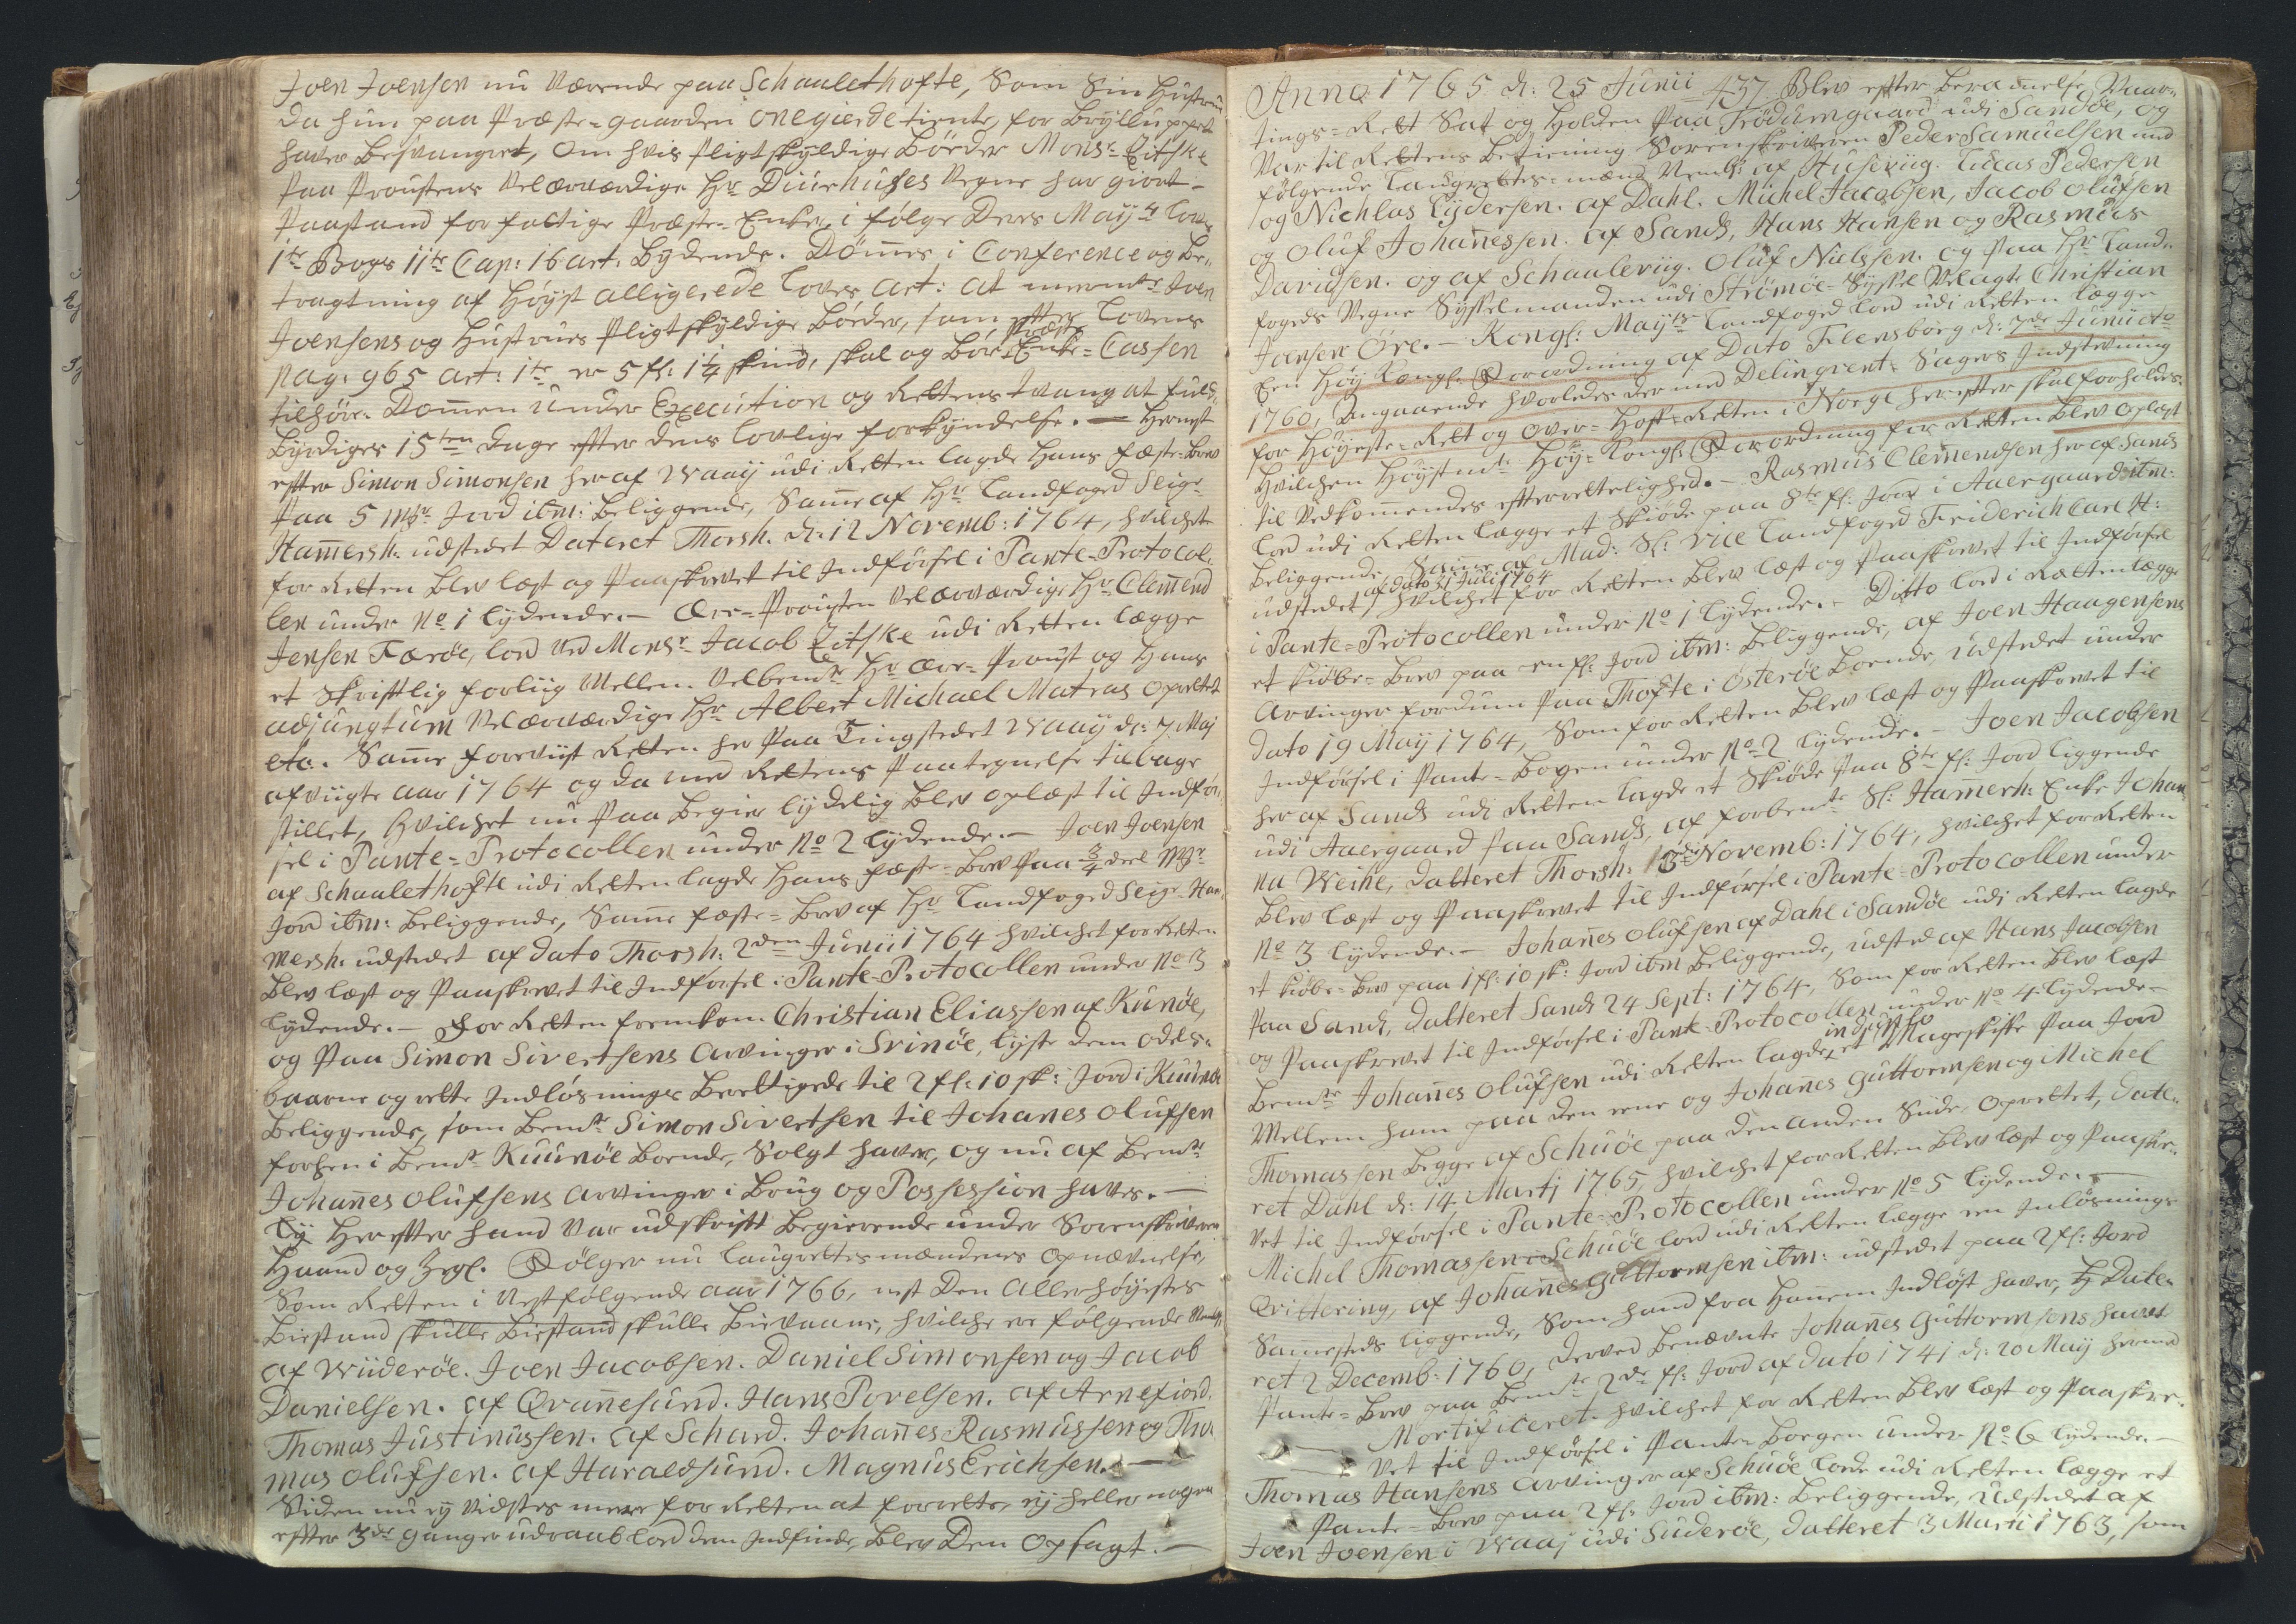 Joen Joensen nu værende paa Schaalethofte, som Sin Hustru
da hun paa Præste-gaarden Onegierdetiente, for Brylluppet
haver besvangret, om hvis Pligtskyldige Bøeder Monsr Zitske
Paa Proustens Velærværdige Hr Diurhuses Vegne har giort
Paastand for fattige Præste-Enker, i følge Deres Mayts Lovs
1te Bogs 11te Cap: 16 art. Lydende. Dømmes i Conference og Be-
tragtning af Høyst alligerede Lovs Art: at meermte Joen
Joensens og Hustrues Pligtskyldige Bøeder, som efter Lovens
pag: 965 art: 1te er 5 fl: 1 1/4 skind, skal og bør Præste Enke-Cassen
tilhøre. Dommen under Execution og Rettens Tvang at fuld-
byrdiges 15ten Dage efter dens lovlige forkyndelse. — Hernest
efter Simon Simonsen her af Waaij udi Retten lagde Hans fæste-Brev
Paa 5 Mkr Jord ibm: beliggende, Samme af Hr Landfoged Seige
Hamersh: udstedet Dateret Thorsh. d: 12 Novemb: 1764, hvilchet
for Retten blev læst og Paaskrevet til Indførsel i Pante-Protocol-
len under No 1 lydende. — Ære-Prousten Velærværdige Hr Clemend
Jensen Færöe, lod ved Monsr Jacob Zitske udi Retten lægge
et skriftlig forliig Mellem Velbemte Hr Ære-Proust og Hans
adjungtum Velærværdige Hr Albert Michael Matras oprettet
etc. Samme foreviist Retten her Paa Tingstedet Waaij d: 7 Maj
afvigte aar 1764 og da med Rettens Paategnelse tilbage
stillet, hvilchet nu Paa begier lydelig blev oplæst til Indfør-
sel i Pante-Protocollen under No 2 lydende. — Joen Joensen
af Schaalethofte udi Retten lagde Hans fæste-Brev Paa 3/4 deel Mkr
Jord ibm: beliggende, Samme fæste-Brev af Hr Landfoged Seige Ham-
mersh. udstedet af dato Thorsh: 2den Junii 1764 hvilchet for Retten
blev læst og Paaskrevet til Indførsel i Pante-Protocollen under No 3
lydende. — For Retten fremkom Christian Eliassen af Kunöe,
og Paa Simon Sivertsens arvinger i Svinöe, lyste dem odels-
baarne og rette Indløsnings berettigede til 2 fl: 10 sk: Jord i Kuunöe
beliggende, som bemte Simon Sivertsen til Johanes Olufsen
forhen i bemte Kuunöe boende, Solgt haver, og nu af bemte
Johannes Olufsens arvinger i Brug og Possession haves. —
Ey Herefter hand var udskrifft begierende under Sorenskriverens
Haand og Zegl. Følger nu laugrettesmændenes opnævnelse,
Som Retten i Nestfølgende aar 1766, nest Den Allerhøyestes
Bistand skulle Bistand skulle Bievaane, hvilche er følgende Neml:
af Wiiderøe. Joen Jacobsen. Daniel Simonsen og Jacob
Danielsen. af Qvannesund. Hans Povelsen. af Arnefiord.
Thomas Justinussen. af Schard. Johannes Rasmussen og Tho-
mas Olufsen. af Haraldsund. Magnus Erichsen. —
Siden nu ey Vidstes mere for Retten at forrette ey heller nogen
efter 3de ganger udraab lod dem Indfinde, blev Den Opsagt. —
Anno 1765 d: 25 Junii 437 Blev efter berammelse Vaar-
tings-Rett Sat og Holden Paa Trödumgaard udi Sandöe, og
Var til Rettens betiening Sorenskriveren Peder Samuelsen med
følgende Laugrettes-mænd Neml: af Husevig. Lucas Pedersen
og Nichlas Lydersen. af Dahl. Michel Jacobsen, Jacob Olufsen
og Oluf Johannessen. af Sand, Hans Hansen og Rasmus
Davidsen. og af Schaalevüg. Oluf Nielssen. og Paa Hr Land-
fogeds Vegne Sysselmanden udi Strømöe-Syssel Velagte Christian
Jansen Öre. — Kongl: Mayts Landfoged lod udi Retten lægge
Een Høy Kongl: Forordning af Dato Flensborg d: 7de Junii Ao
1760, Angaaende hvorledes der med Delinqvent-Sagers Indstevning
for Høyeste-Rett og Over-Hoff-Retten i Norge herefter skal forholdes.
Hvilchen Høystmte Høy-Kongl: Forordning for Retten blev oplæst
til Vedkommendes efterrettelighed. — Rasmus Clemendsen her af Sand
lod udi Retten lægge et Skiøde paa 8te fl: Jord i Auergaard ibm:
beliggende. Samme af Mad: Sl: Vice Landfoged Friderich Carl H:
udstedet af dato 31 Julii 1764 hvilchet for Retten blev læst og Paaskrevet til Indførsel
i Pante-Protocollen under No 1 lydende. — Ditto lod i Retten lægge
et kiøbe-Brev paa en fl: Jord ibm: beliggende, af Joen Haagensens
Arvinger fordum paa Thofte i Østeröe boende, udstedet under
dato 19 Maij 1764, Som for Retten blev læst og Paaskrevet til
Indførsel i Pante-Bogen under No 2 lydende. — Joen Jacobsen
her af Sand udi Retten lagde et Skiøde Paa 8te fl: Jord liggende
udi Auergaard paa Sand, af forbemte Sl: Hamersh: Enke Johan-
na Weihe, datteret Thorsh: 13 Novemb: 1764, hvilchet for Retten
blev læst og Paaskrevet til Indførsel i Pante-Protocollen under
No 3 lydende. — Johannes Olufsen af Dahl i Sandöe udi Retten lagde
et kiøbe-Brev paa 1 fl: 10 sk: Jord ibm beliggende, udsted af Hans Jacobsen
Paa Sand, datteret Sand 24 Sept: 1764, Som for Retten blev læst
og Paaskrevet til Indførsel i Pante-Protocollen under No 4 lydende. —
Bemte Johannes Olufsen udi Retten lagde in duplo et Mageskifte Paa Jord
Mellem ham paa den eene og Johanes Guttormsen og Michel
Thomassen begge af Schuöe paa den anden Side, oprettet, date-
ret Dahl d: 14 Martj 1765, hvilchet for Retten blev læst og Paaskre-
vet til Indførsel i Pante-Protocollen under No 5 lydende. —
Michel Thomassen i Schuöe lod udi Retten lægge en Inløsnings
Qvittering, af Johannes Guttormsen ibm: udstedet paa 2 fl: Jord
Samesteds liggende, Som hand fra Hannem Indløst haver, Date-
ret 2 Decemb: 1760, derved benævnte Johanes Guttormsens havte
Pante-Brev paa bemte 2de fl: Jord af dato 1741 d: 20 Maij hermed
Mortificeret. hvilchet for Retten blev læst og Paaskre-
vet til Indførsel i Pante-Bogen under No 6 lydende. —
Thomas Hansens arvinger af Schuöe lode udi Retten lægge et
Pante-Brev paa 2 fl: Jord ibm: beliggende, udstedet af
Joen Joensen i Waaj udi Suderöe, datteret 3 Marti 1763, som